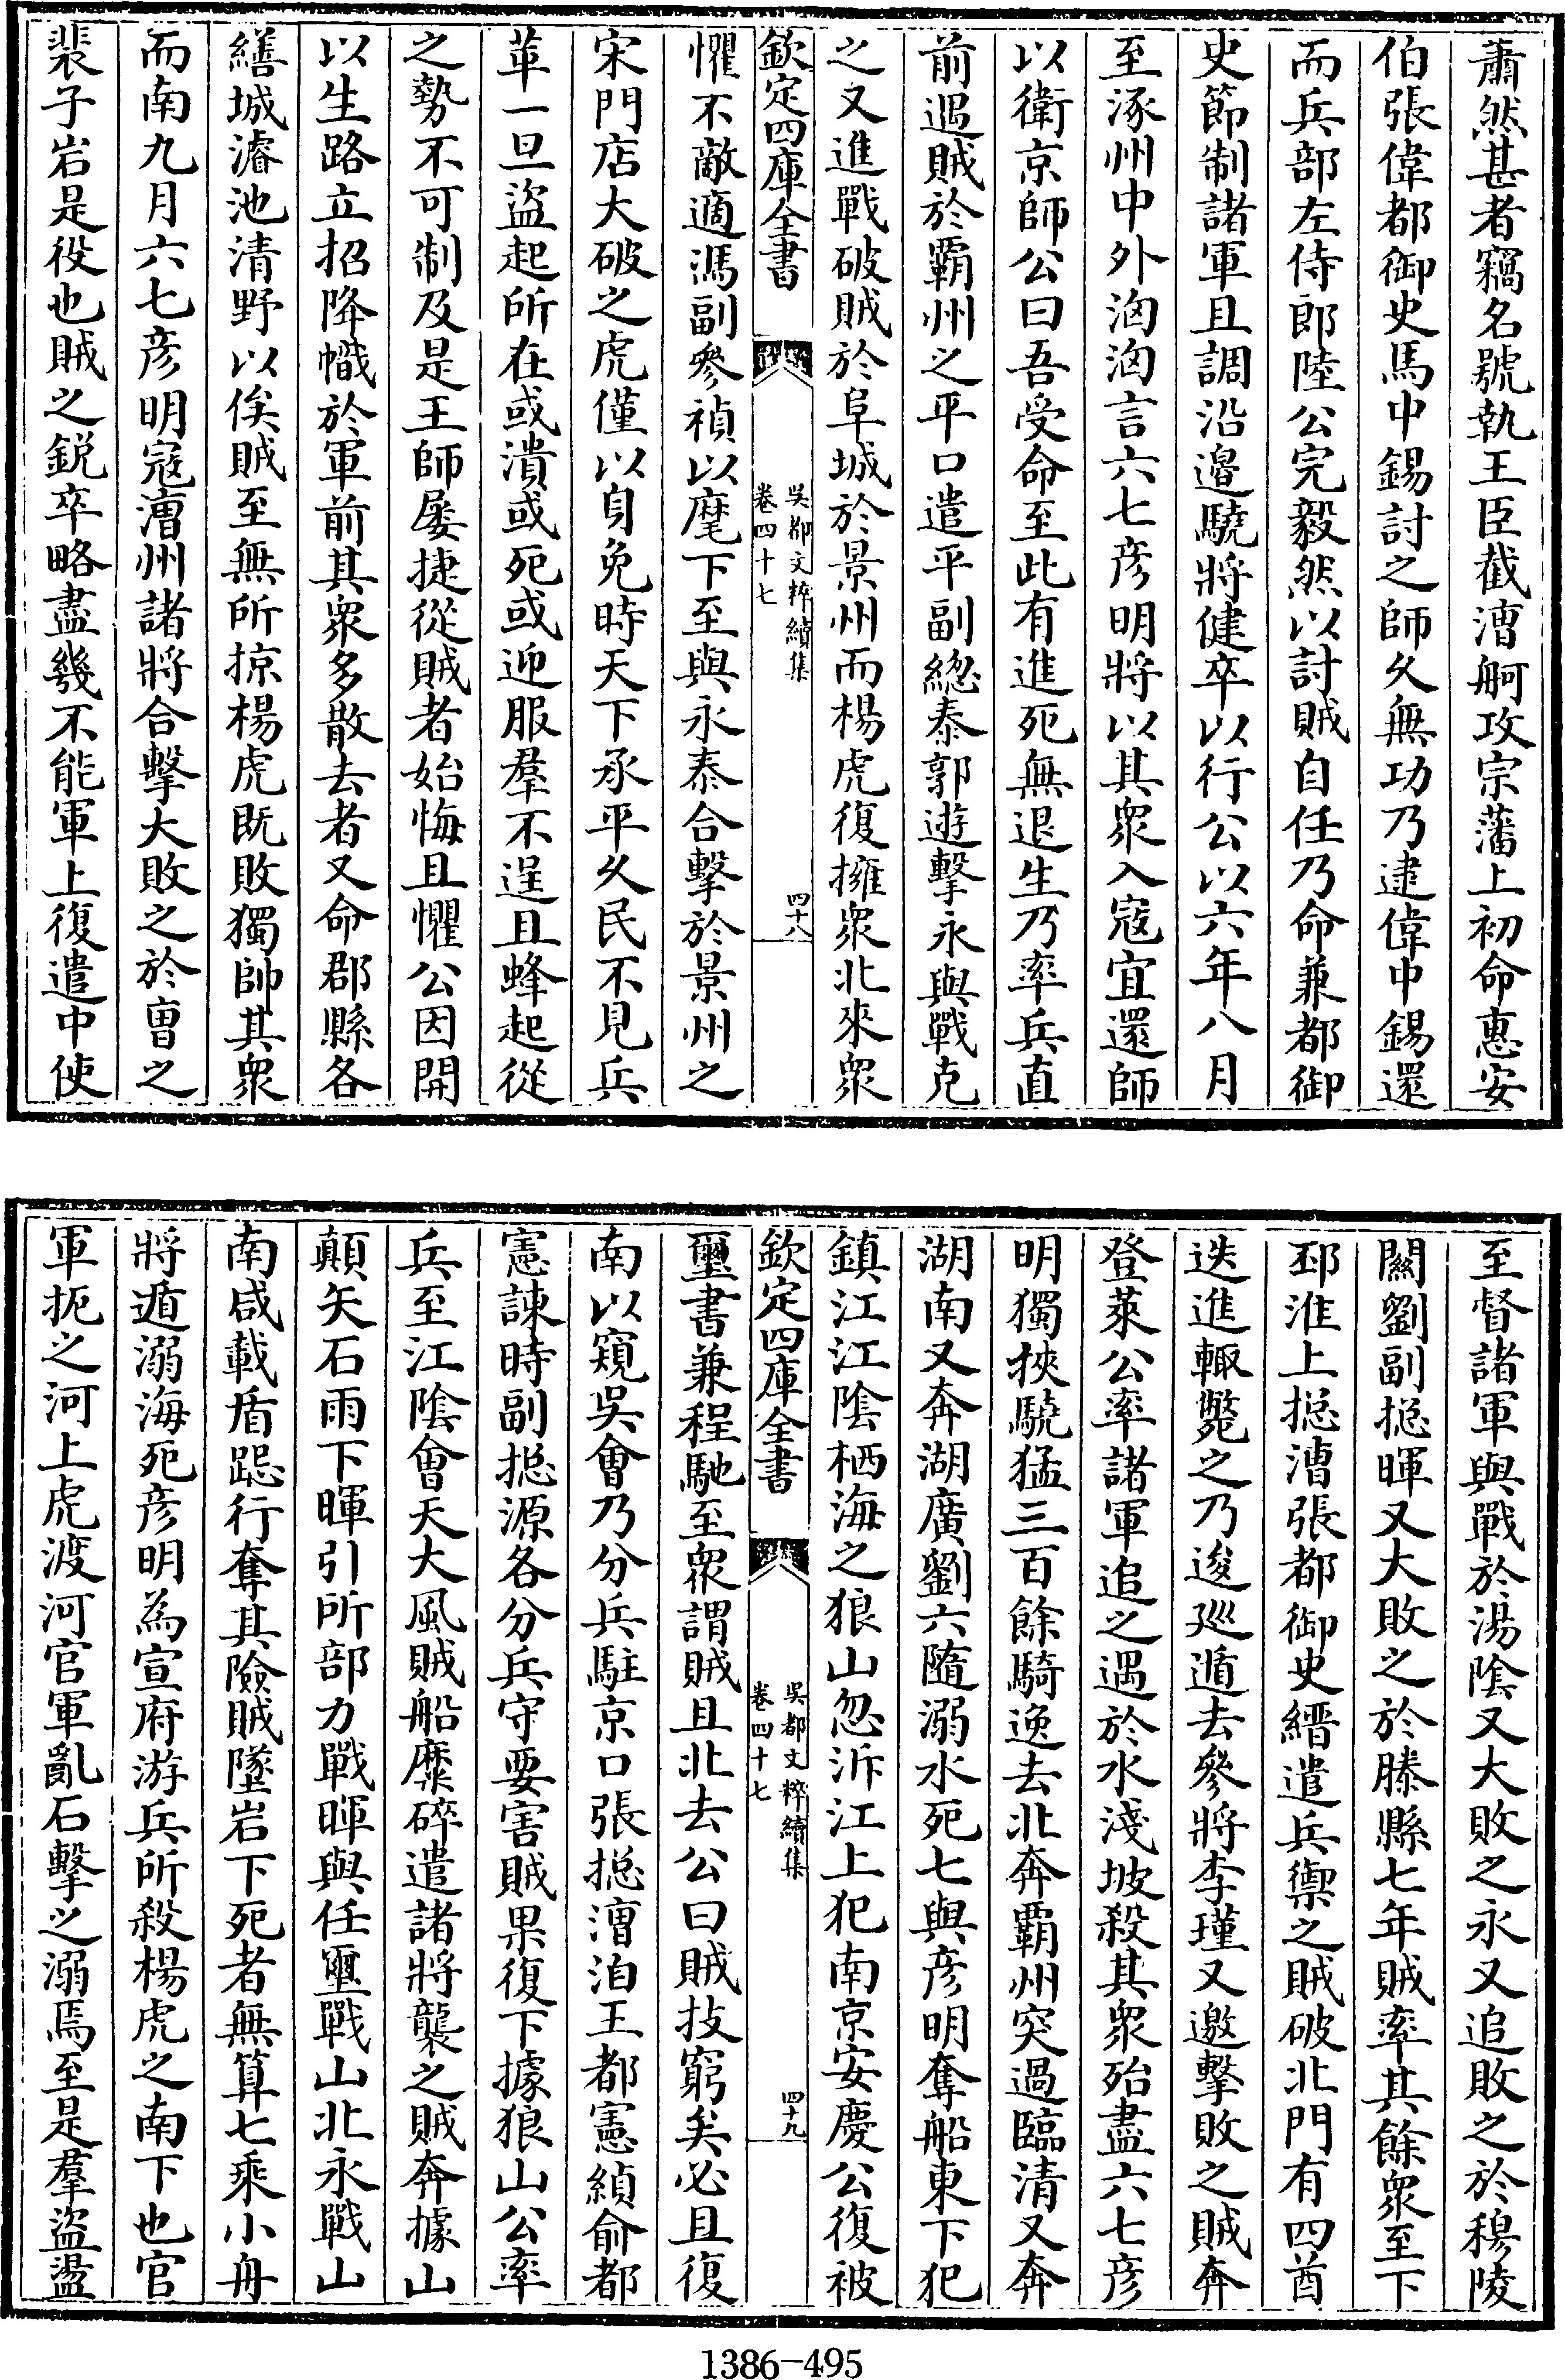 蕭然甚者竊名號執王臣截漕舸攻宗藩上初命惠安
伯張偉都御史馬中錫討之師久無功乃逮偉中錫還
而兵部左侍郎陸公完毅然以討賊自任乃命兼都御
史節制諸軍且調沿邉驍將健卒以行公以六年八月
至涿州中外洶洶言六七彦明將以其衆入寇宜還師
以衛京師公曰吾受命至此有進死無退生乃率兵直
前遇賊於霸州之平口遣平副總泰郭遊擊永與戰克
之又進戰破賊於阜城於景州而楊虎復擁衆北來衆
欽定四庫全書
吳都文粹續集
卷四十七
四十八
懼不敵適馮副參禎以麾下至與永泰合擊於景州之
宋門店大破之虎僅以身免時天下承平久民不見兵
革一旦盜起所在或潰或死或迎服羣不逞且蜂起從
之勢不可制及是王師屡捷從賊者始悔且懼公因開
以生路立招降幟於軍前其衆多散去者又命郡縣各
繕城濬池清野以俟賊至無所掠楊虎既敗獨帥其衆
而南九月六七彦明寇漕州諸將合擊大敗之於曹之
裴子岩是役也賊之鋭卒略盡幾不能軍上復遣中使
至督諸軍與戰於湯陰又大敗之永又追敗之於穆陵
闗劉副摠暉又大敗之於滕縣七年賊率其餘衆至下
邳淮上摠漕張都御史縉遣兵禦之賊破北門有四酋
迭進輙斃之乃逡巡遁去參將李瑾又邀擊敗之賊奔
登萊公率諸軍追之遇於水淺坡殺其衆殆盡六七彦
明獨挾驍猛三百餘騎逸去北奔霸州突過臨清又奔
湖南又奔湖廣劉六隨溺水死七與彦明奪船東下犯
鎮江江陰栖海之狼山忽泝江上犯南京安慶公復被
欽定四庫全書
吳都文粹續集
卷四十七
四十九
璽書兼程馳至衆謂賊且北去公曰賊技窮矣必且復
南以窺吳會乃分兵駐京口張摠漕洎王都憲縝俞都
憲諫時副摠源各分兵守要害賊果復下據狼山公率
兵至江陰會天大風賊船糜碎遣諸將襲之賊奔據山
顛矢石雨下暉引所部力戰暉與任璽戰山北永戰山
南咸載盾跽行奪其險賊墜岩下死者無算七乘小舟
將遁溺海死彦明為宣府游兵所殺楊虎之南下也官
軍扼之河上虎渡河官軍亂石擊之溺焉至是羣盜盪
1386-495